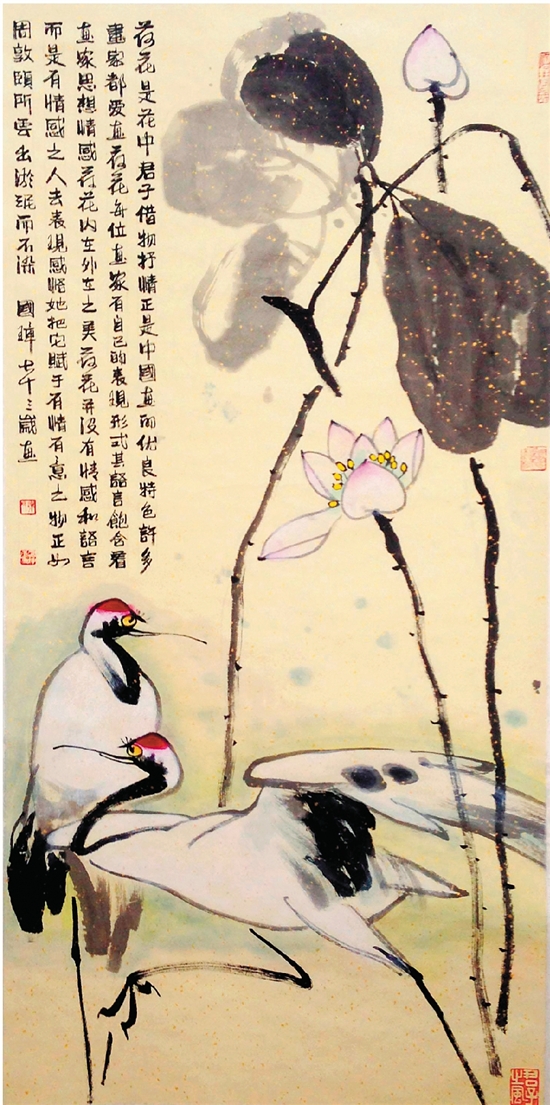 荷花是花中君子借物抒情正是中國画的优良特色許多
畫家都爱画荷花每位画家有自己的表現形式其語言飽含着
画家思想情感荷花内在外在之美荷花并没有情感和語言
而是有情感之人去表現感悟她把它賦于有情有意之物正如
周敦頤所云出淤泥而不染 國璋七十三歲画
君子之風